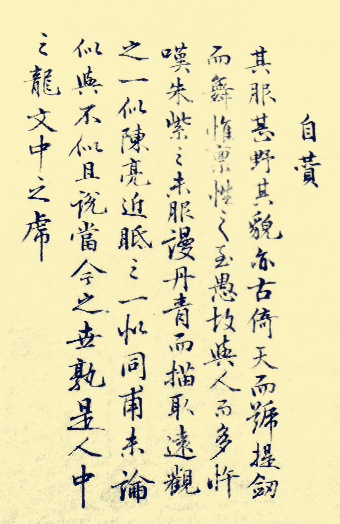 自贊
其服甚野其貌亦古倚天而號提劍
而舞惟稟性之至愚故與人而多忤
嘆朱紫之未服謾丹青而描取遠觀
之一似陳亮近眂之一似同甫未論
似與不似且說當今之世孰是人中
之龍文中之虎